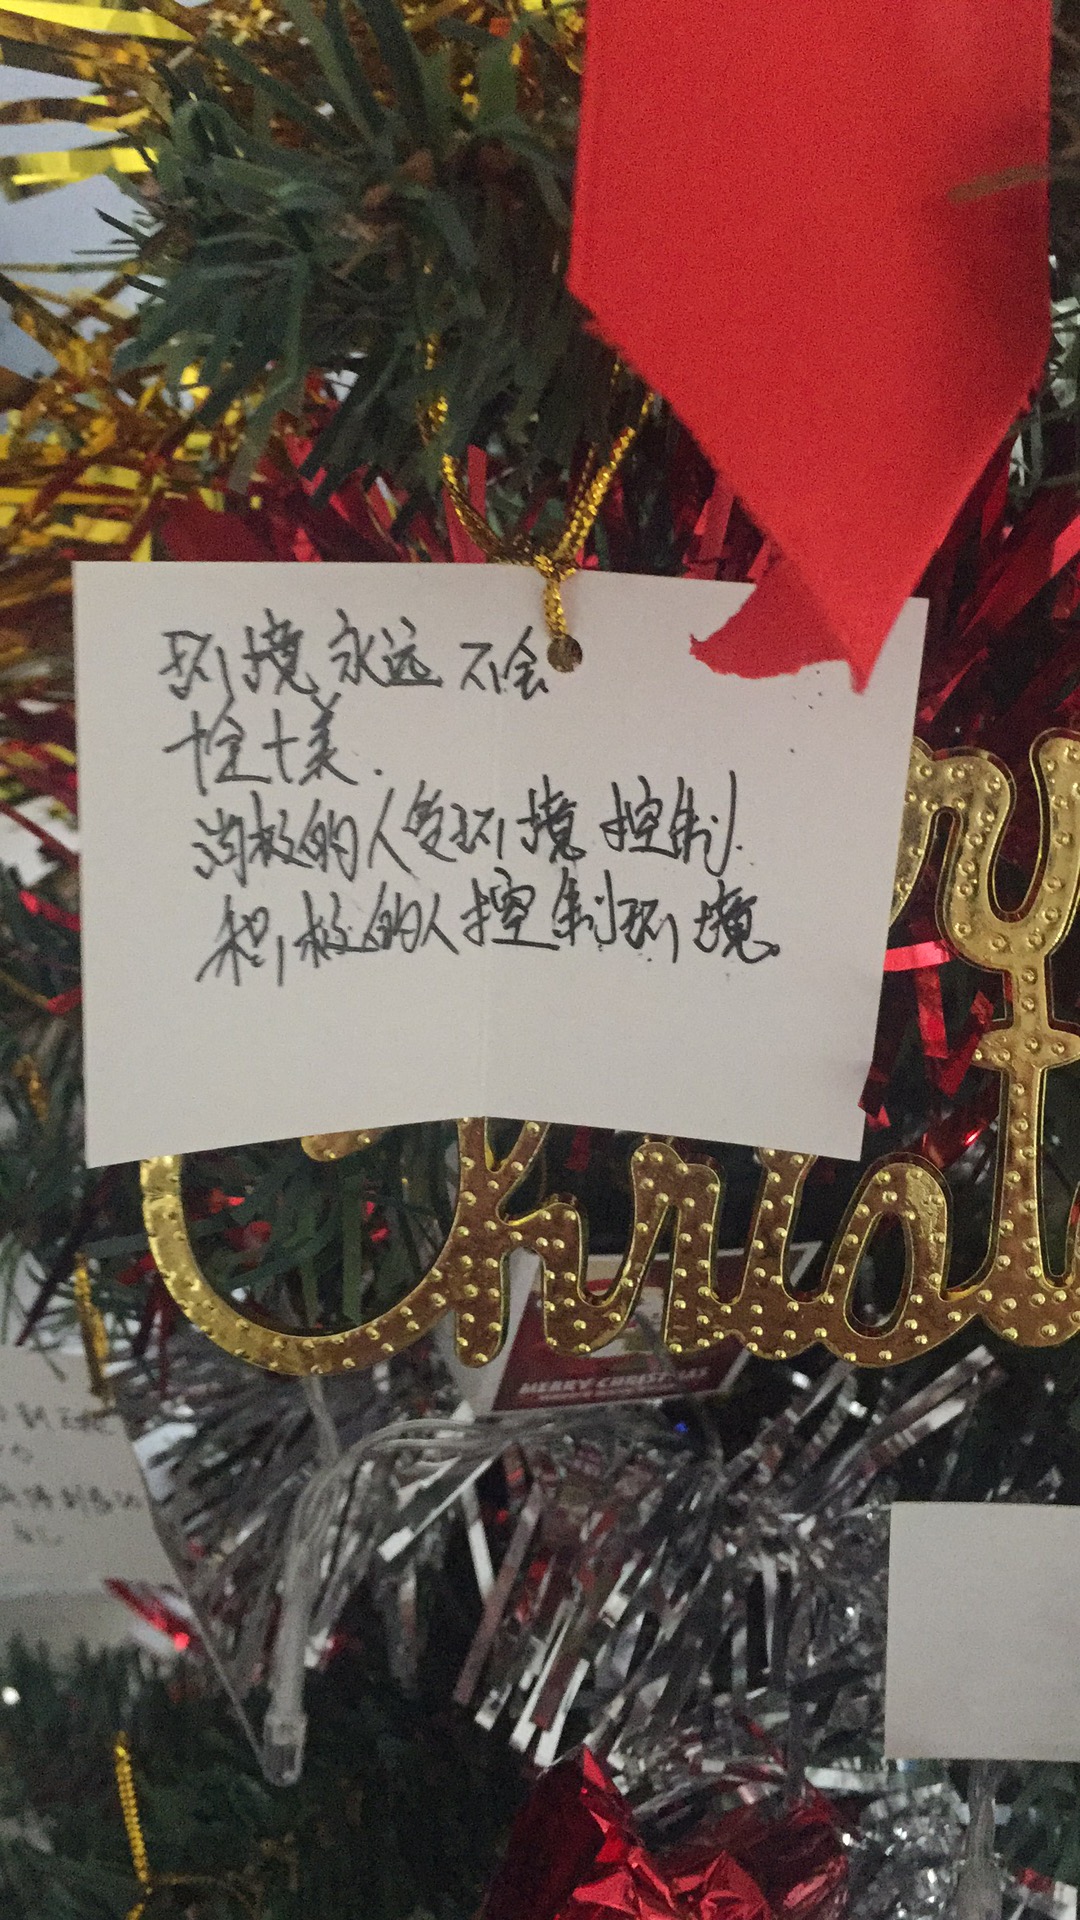 环境永远不会
十全十美.
消极的人受环境控制.
积极的人控制环境。
Christ
MERRY CHRISTMAS